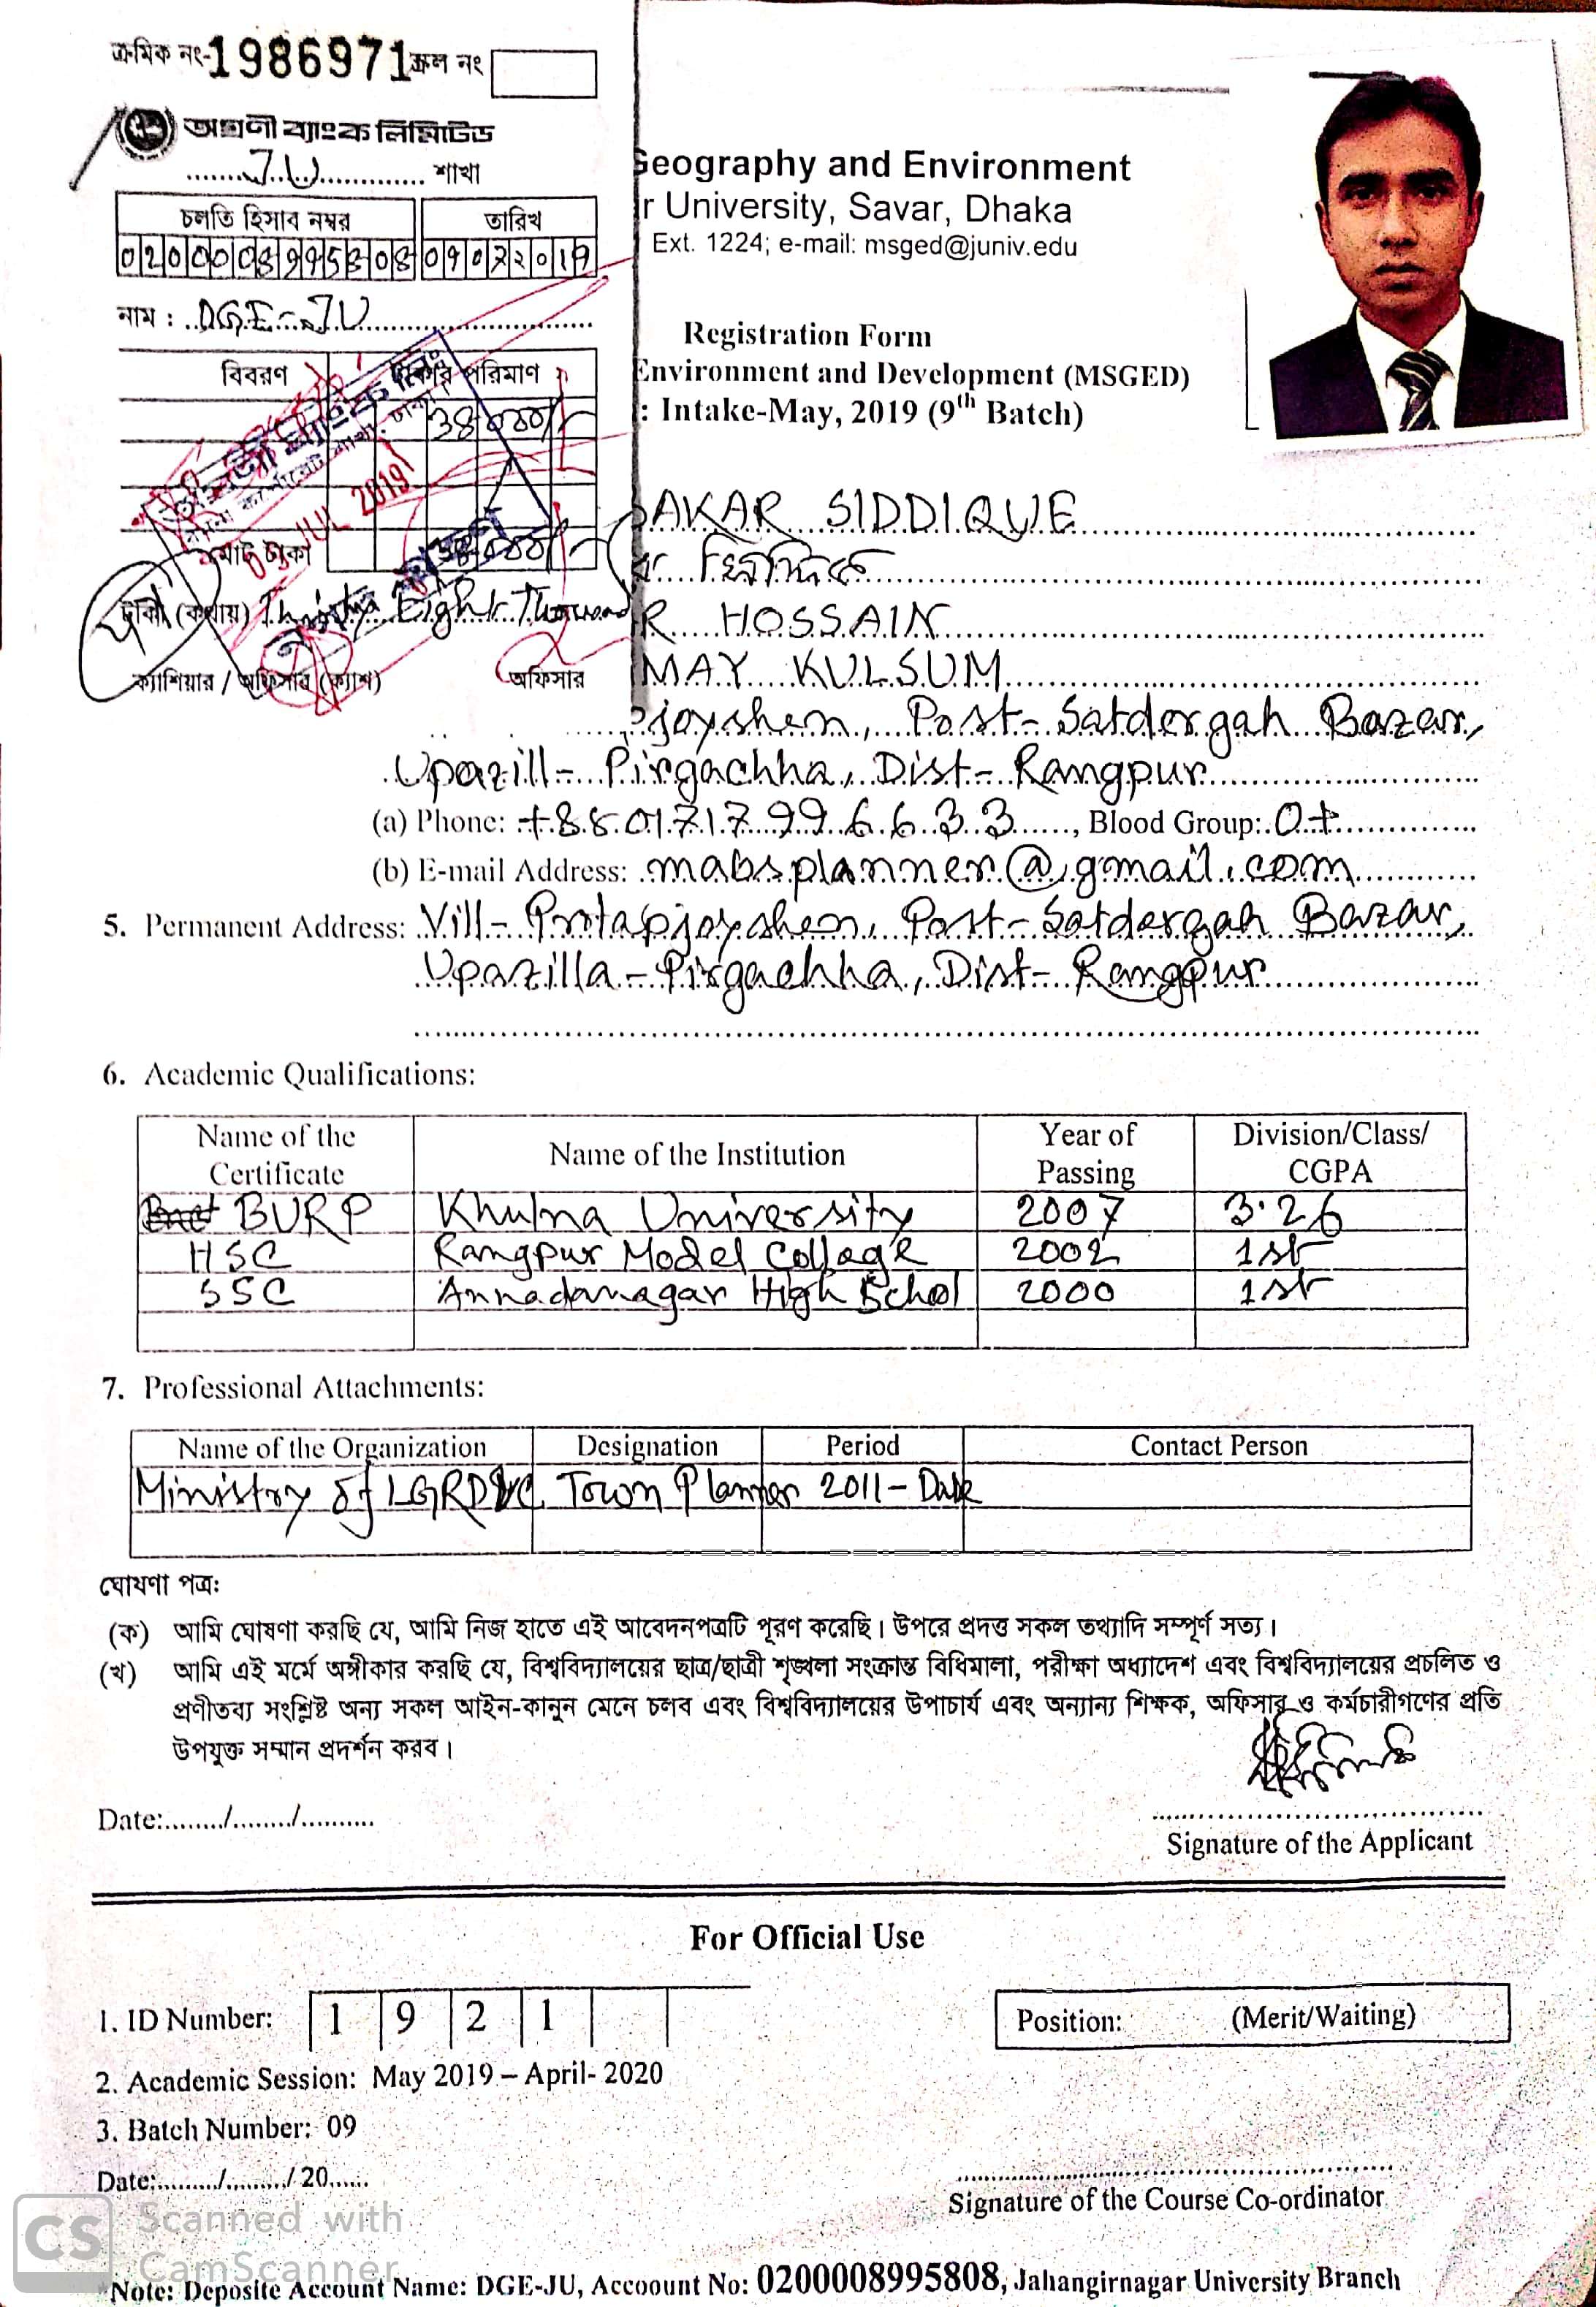 ক্রমিক নং-1986971 স্ক্রল নং
অগ্রণী ব্যাংক লিমিটেড
JU শাখা
চলতি হিসাব নম্বর তারিখ
নাম : DGE-JU
বিবরণ টাকার পরিমাণ
38000/-
JUL 2019
মোট টাকা 38000/-
টাকা (কথায়) Thirty Eight Thousand
ক্যাশিয়ার / অফিসার (ক্যাশ) অফিসার
Geography and Environment
r University, Savar, Dhaka
Ext. 1224; e-mail: msged@juniv.edu
Registration Form
Environment and Development (MSGED)
: Intake-May, 2019 (9th Batch)
AKAR SIDDIQUE
সিদ্দিক
R HOSSAIN
MAY KULSUM
pjoyshen, Post- Satdergah Bazar,
Upazill- Pirgachha, Dist- Rangpur
(a) Phone: +8801717996633, Blood Group: O+
(b) E-mail Address: mabsplanner@gmail.com
5. Permanent Address: Vill- Protapjoyshen, Post- Satdergah Bazar,
Upazilla- Pirgachha, Dist- Rangpur
6. Academic Qualifications:
Name of the Certificate Name of the Institution Year of Passing Division/Class/ CGPA
BURP Khulna University 2007 3.26
HSC Rangpur Model College 2002 1st
SSC Annadanagar High School 2000 1st
7. Professional Attachments:
Name of the Organization Designation Period Contact Person
Ministry of LGRD&C Town Planner 2011- Date
ঘোষণা পত্র:
(ক) আমি ঘোষণা করছি যে, আমি নিজ হাতে এই আবেদনপত্রটি পূরণ করেছি। উপরে প্রদত্ত সকল তথ্যাদি সম্পূর্ণ সত্য।
(খ) আমি এই মর্মে অঙ্গীকার করছি যে, বিশ্ববিদ্যালয়ের ছাত্র/ছাত্রী শৃঙ্খলা সংক্রান্ত বিধিমালা, পরীক্ষা অধ্যাদেশ এবং বিশ্ববিদ্যালয়ের প্রচলিত ও
প্রণীতব্য সংশ্লিষ্ট অন্য সকল আইন-কানুন মেনে চলব এবং বিশ্ববিদ্যালয়ের উপাচার্য এবং অন্যান্য শিক্ষক, অফিসার ও কর্মচারীগণের প্রতি
উপযুক্ত সম্মান প্রদর্শন করব।
Date:......../......../..........
Signature of the Applicant
For Official Use
1. ID Number: 1 9 2 1
Position: (Merit/Waiting)
2. Academic Session: May 2019 – April- 2020
3. Batch Number: 09
Date:........./........./ 20......
Signature of the Course Co-ordinator
CS Scanned with
CamScanner
Note: Deposite Account Name: DGE-JU, Accoount No: 0200008995808, Jahangirnagar University Branch